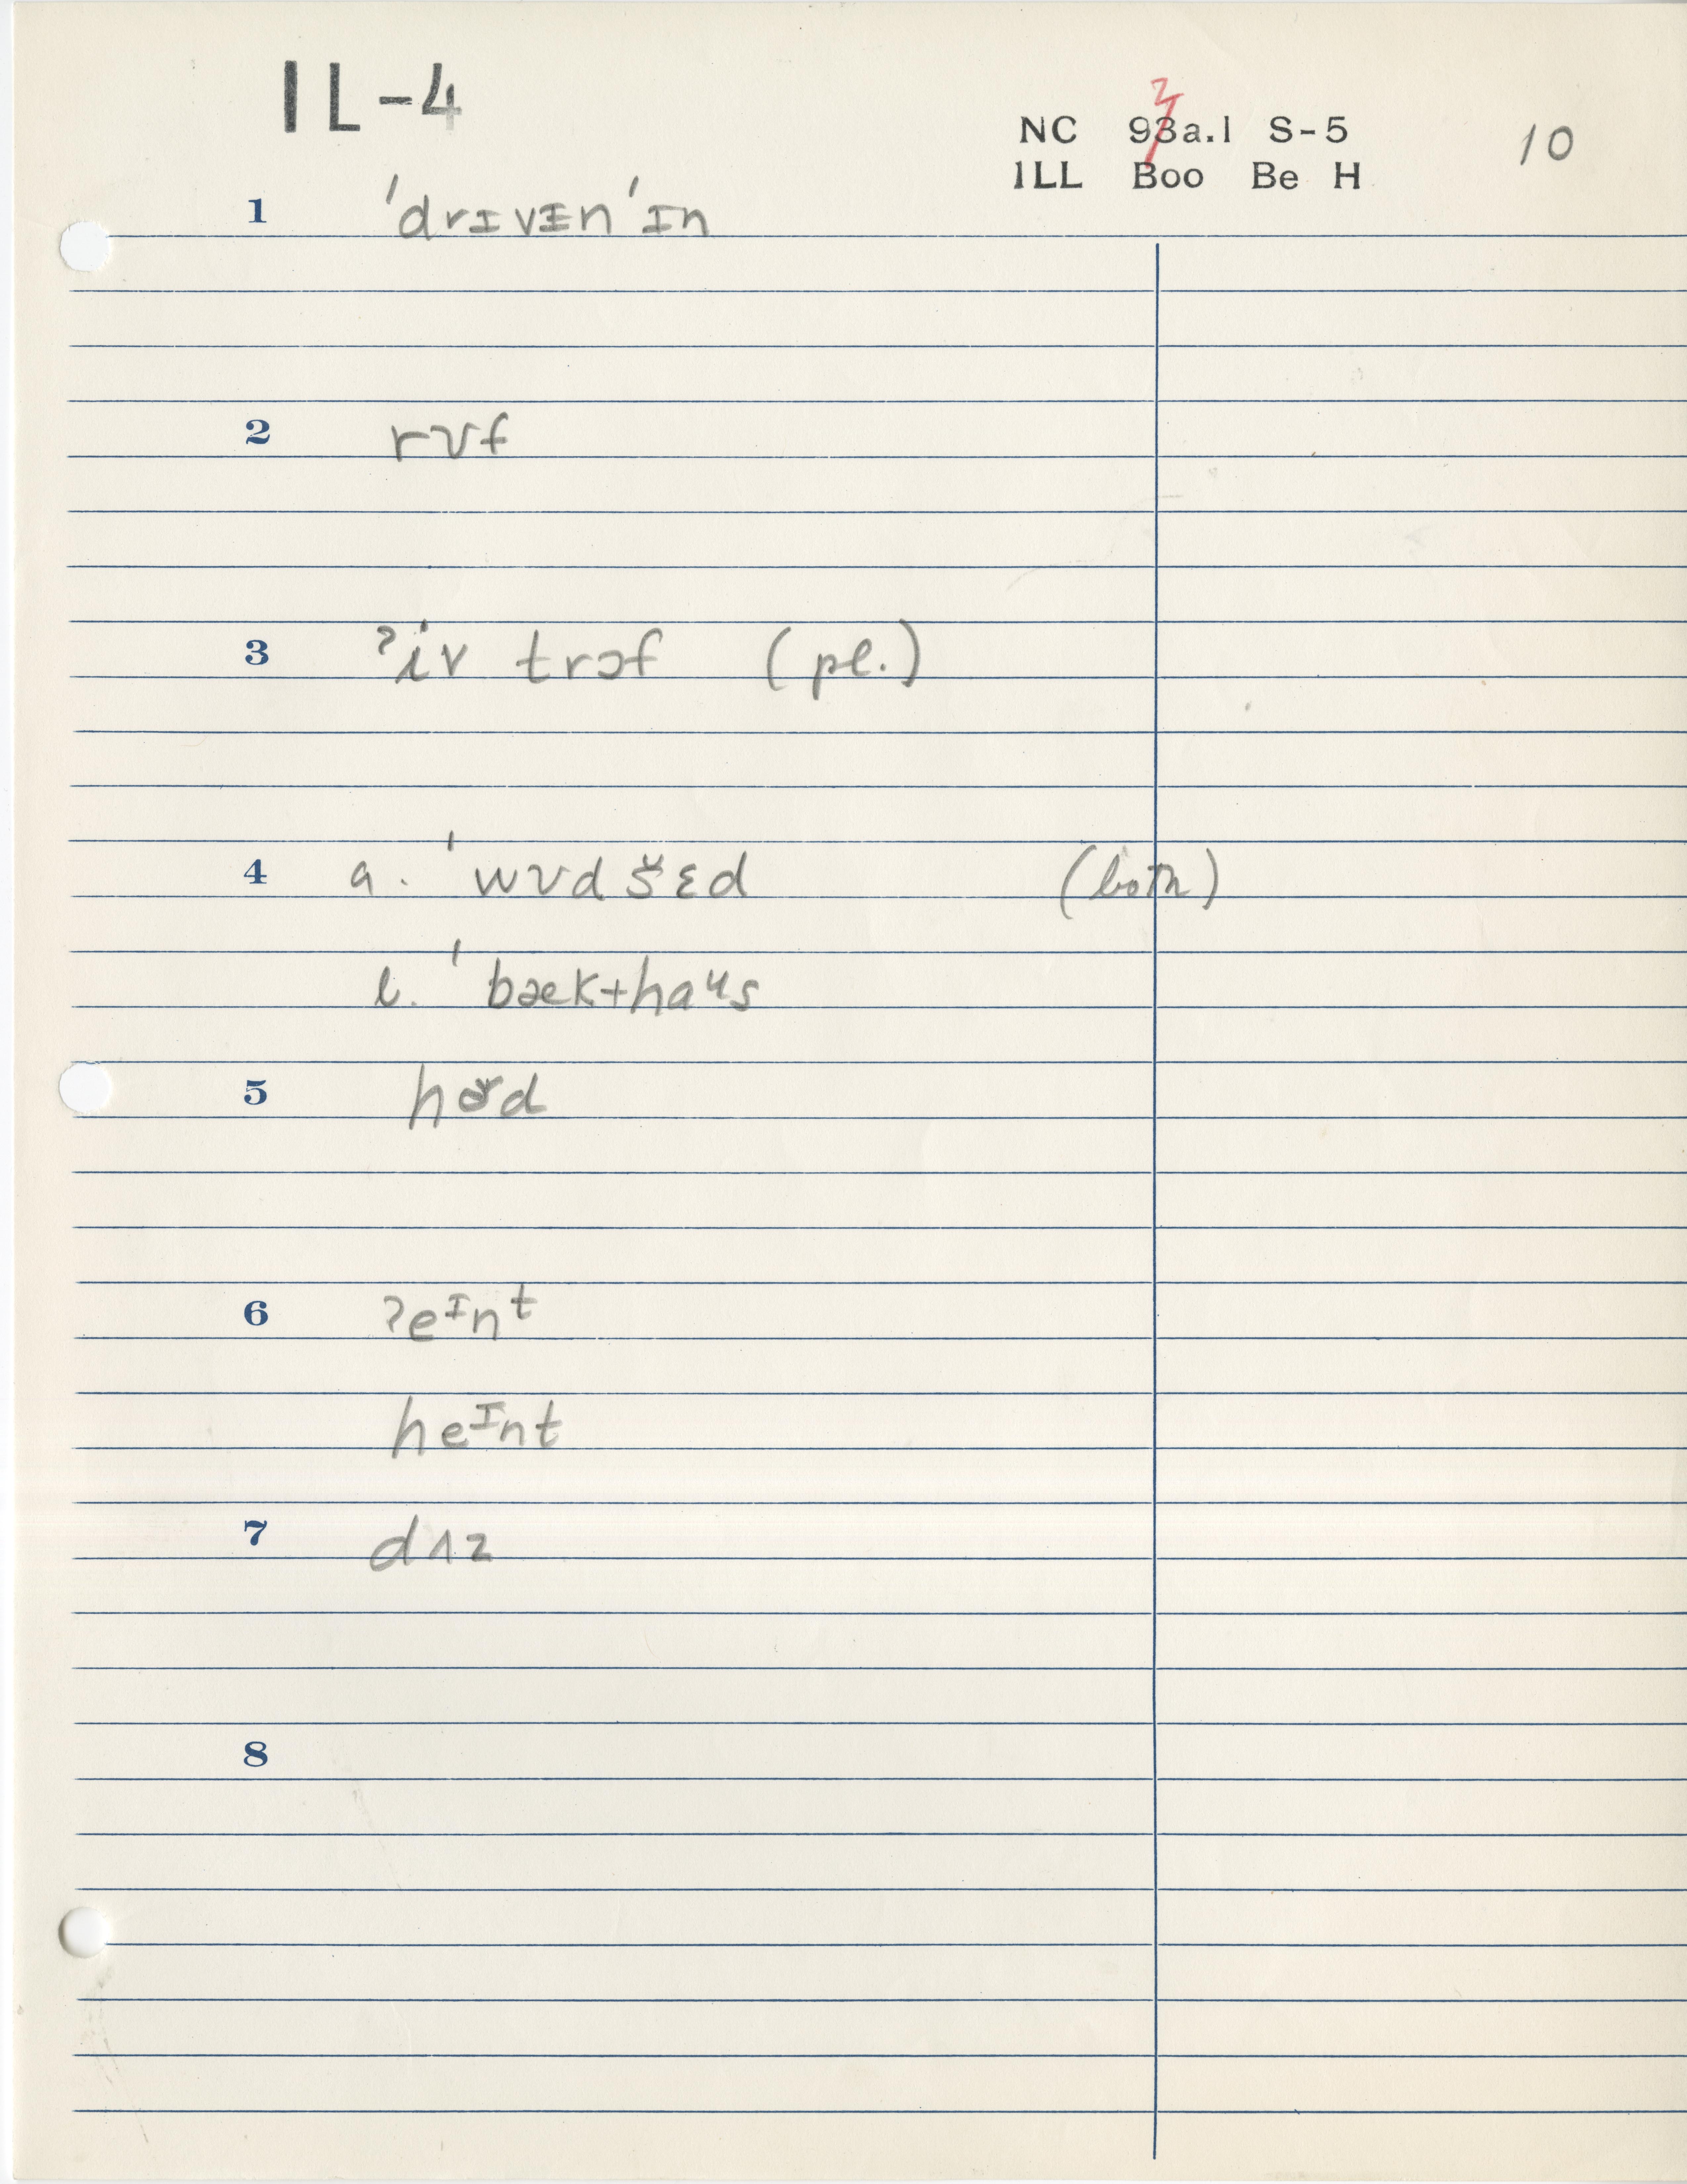 IL-4
NC 93a.1 S-5
2
ILL Boo Be H
10
1 ˈdrɪvɪ̵n ˈɪn
2 rʊf
3 ʔiv trɔf (pl.)
4 a. ˈwʊdšɛd (both)
b. ˈbæk+haᵘs
5 hɚd
6 ʔeᶦnᵗ
heᶦnt
7 dʌz
8